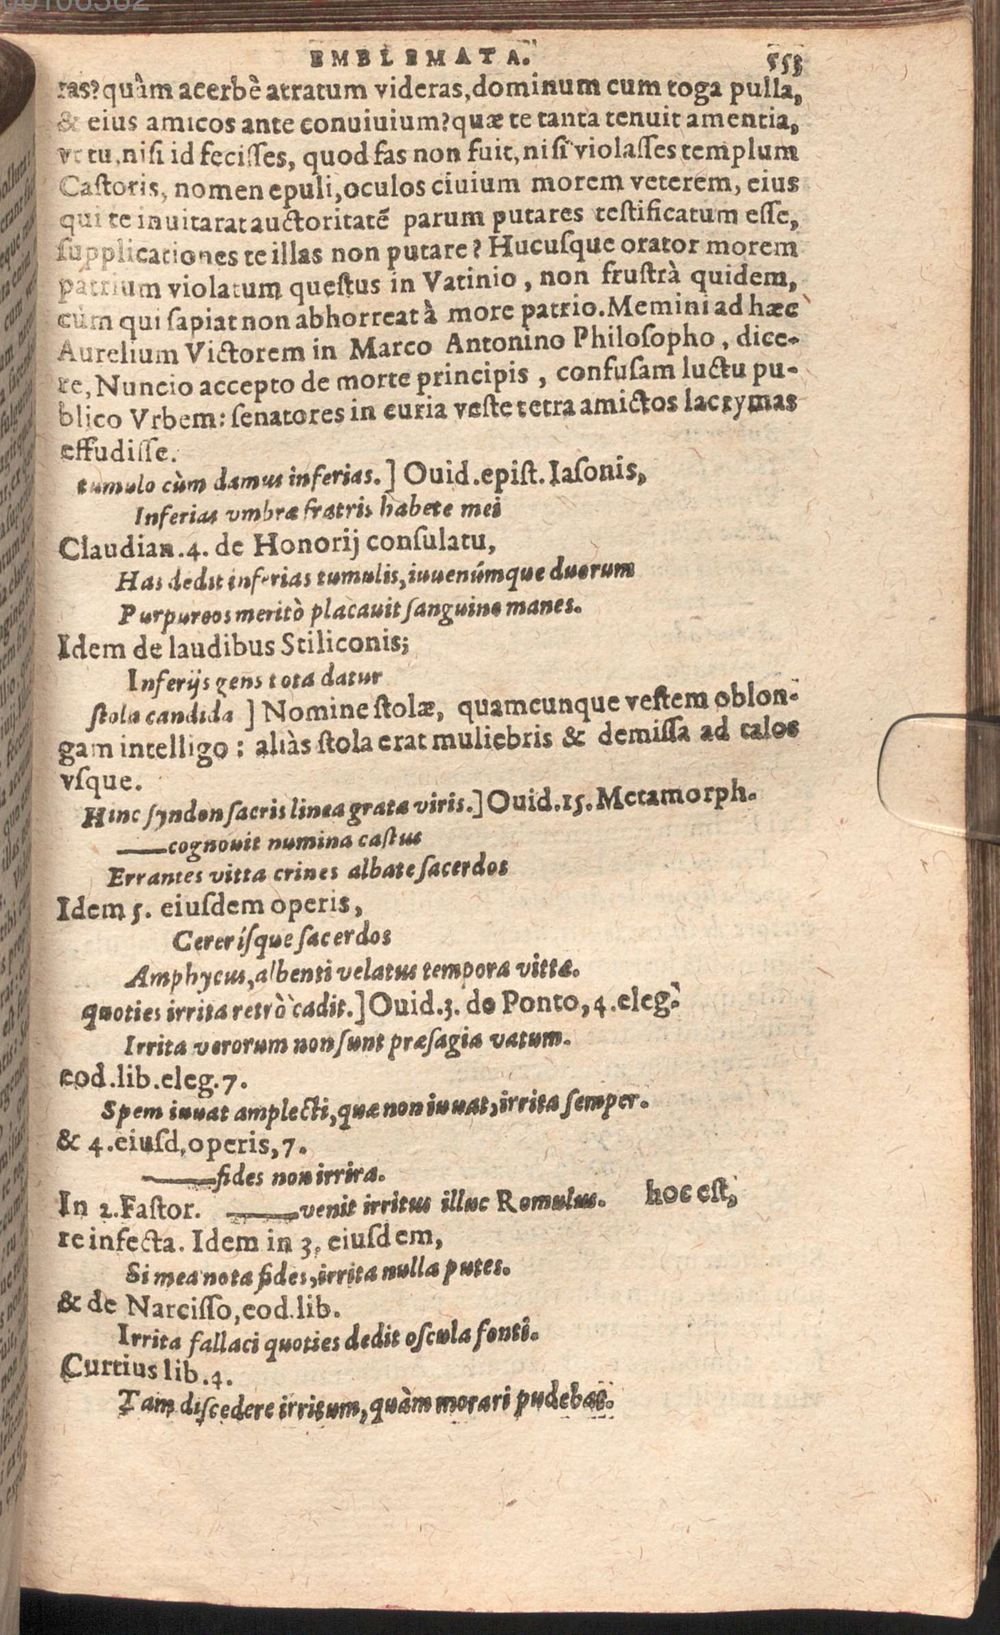 EMBLEMATA. 553
ras? quàm acerbè atratum videras, dominum cum toga pulla,
& eius amicos ante conuiuium? quæ te tanta tenuit amentia,
vt tu, nisi id fecisses, quod fas non fuit, nisi violasses templum
Castoris, nomen epuli, oculos ciuium morem veterem, eius
qui te inuitarat auctoritatē parum putares testificatum esse,
supplicationes te illas non putare? Hucusque orator morem
patrium violatum questus in Vatinio, non frustrà quidem,
cùm qui sapiat non abhorreat à more patrio. Memini ad hæc
Aurelium Victorem in Marco Antonino Philosopho, dice-
re, Nuncio accepto de morte principis, confusam luctu pu-
blico Vrbem: senatores in curia veste tetra amictos lacrymas
effudisse.
tumulo cùm damus inferias.] Ouid. epist. Iasonis,
Inferias vmbræ fratris habete mei
Claudian. 4. de Honorij consulatu,
Has dedit inferias tumulis, iuuenúmque duorum
Purpureos meritò placauit sanguine manes.
Idem de laudibus Stiliconis;
Inferijs gens tota datur
stola candida ] Nomine stolæ, quamcunque vestem oblon-
gam intelligo: aliàs stola erat muliebris & demissa ad talos
vsque.
Hinc syndon sacris linea grata viris.] Ouid. 15. Metamorph.
——cognouit numina castus
Errantes vitta crines albate sacerdos
Idem 5. eiusdem operis,
Cererísque sacerdos
Amphycus, albenti velatus tempora vitta.
quoties irrita retrò cadit.] Ouid. 3. de Ponto, 4. eleg.
Irrita verorum non sunt præsagia vatum.
eod. lib. eleg. 7.
Spem iuuat amplecti, quæ non iuuat, irrita semper.
& 4. eiusd, operis, 7.
——fides non irrira.
In 2. Fastor. ——venit irritus illuc Romulus. hoc est,
re infecta. Idem in 3. eiusdem,
Si mea nota fides, irrita nulla putes.
& de Narcisso, eod. lib.
Irrita fallaci quoties dedit oscula fonti.
Curtius lib. 4.
Tam discedere irritum, quàm morari pudebat.